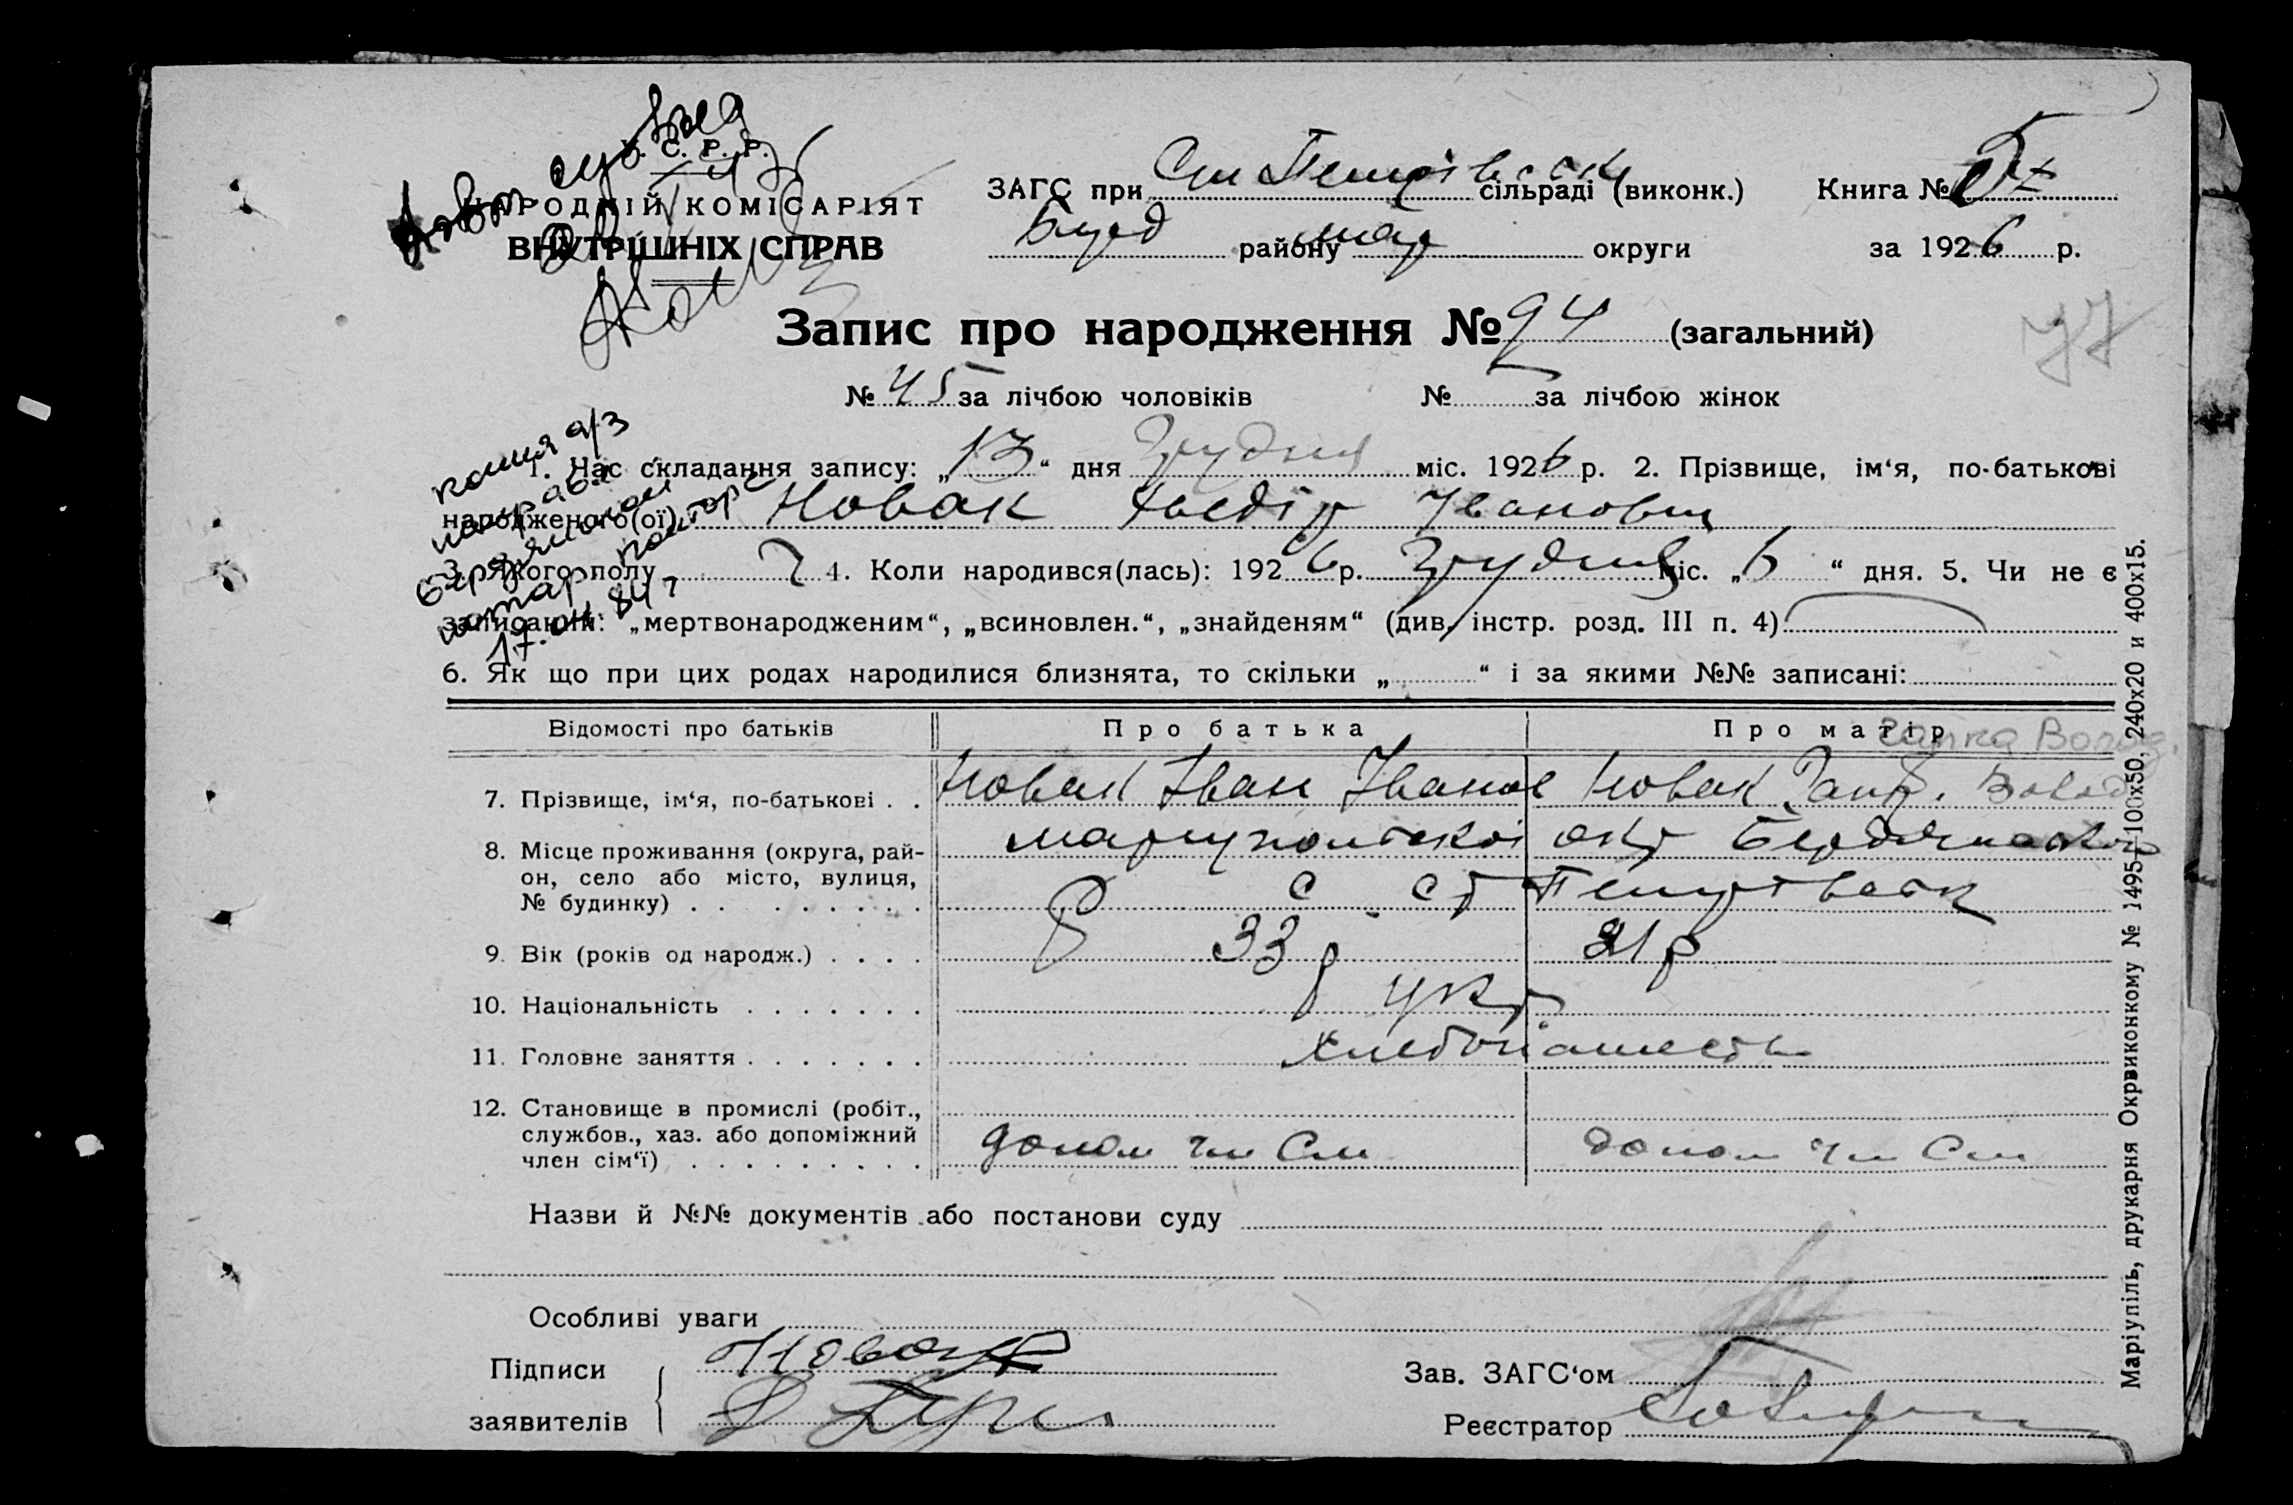 У. С. Р. Р.
НАРОДНІЙ КОМІСАРІЯТ
ВНУТРІШНІХ СПРАВ
ЗАГС при Ст Петрівській сільраді (виконк.) Книга №
Берд району мар округи за 1926 р.
Запис про народження № 94 (загальний)
77
№ 45 за лічбою чоловіків № за лічбою жінок
копия а/з
направл
17.04.84 г
1. Час складання запису: „13“ дня Грудня міс. 1926 р. 2. Прізвище, ім‘я, по-батькові
народженого(ої) Новак Хведір Іванович
3. Якого полу ч 4. Коли народився(лась): 1926 р. Грудня міс. „6“ дня. 5. Чи не є
записаний: „мертвонародженим“, „всиновлен.“, „знайденям“ (див. інстр. розд. III п. 4)
6. Як що при цих родах народилися близнята, то скільки „ “ і за якими №№ записані:
Відомості про батьків Про батька Про матір
7. Прізвище, ім‘я, по-батькові . . Новак Іван Іванов Новак Гапк.
8. Місце проживання (округа, рай-
он, село або місто, вулиця,
№ будинку) . . . . . . . . .
маріупольскоі окр Бердянського
р с Ст Петрівськ
9. Вік (років од народж.) . . . . 33 р 31 р
10. Національність . . . . . . . укр
11. Головне заняття . . . . . . . хлебопашество
12. Становище в промислі (робіт.,
службов., хаз. або допоміжний
член сім‘ї) . . . . . . . . .
допом чл См допом чл См
Назви й №№ документів або постанови суду
Особливі уваги
Підписи Новак
заявителів
Зав. ЗАГС‘ом
Реєстратор
Маріупіль, друкарня Окрвиконкому № 1495—100х50, 240х20 и 400х15.